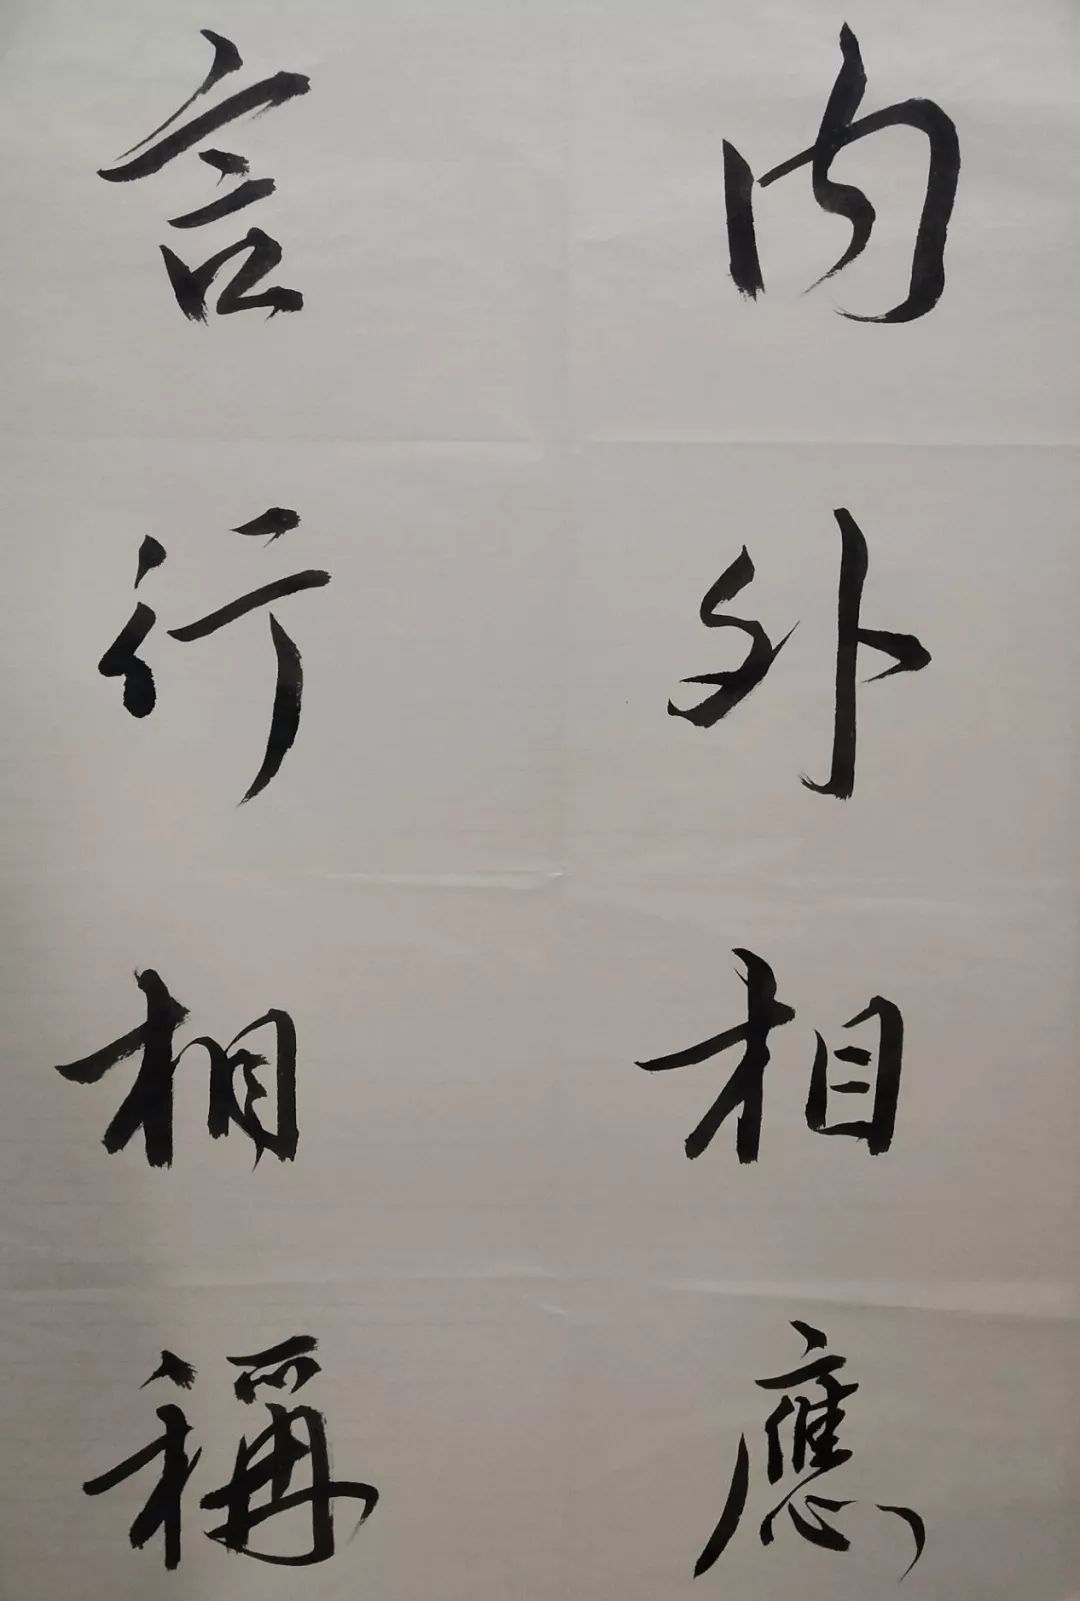 內外相應
言行相稱